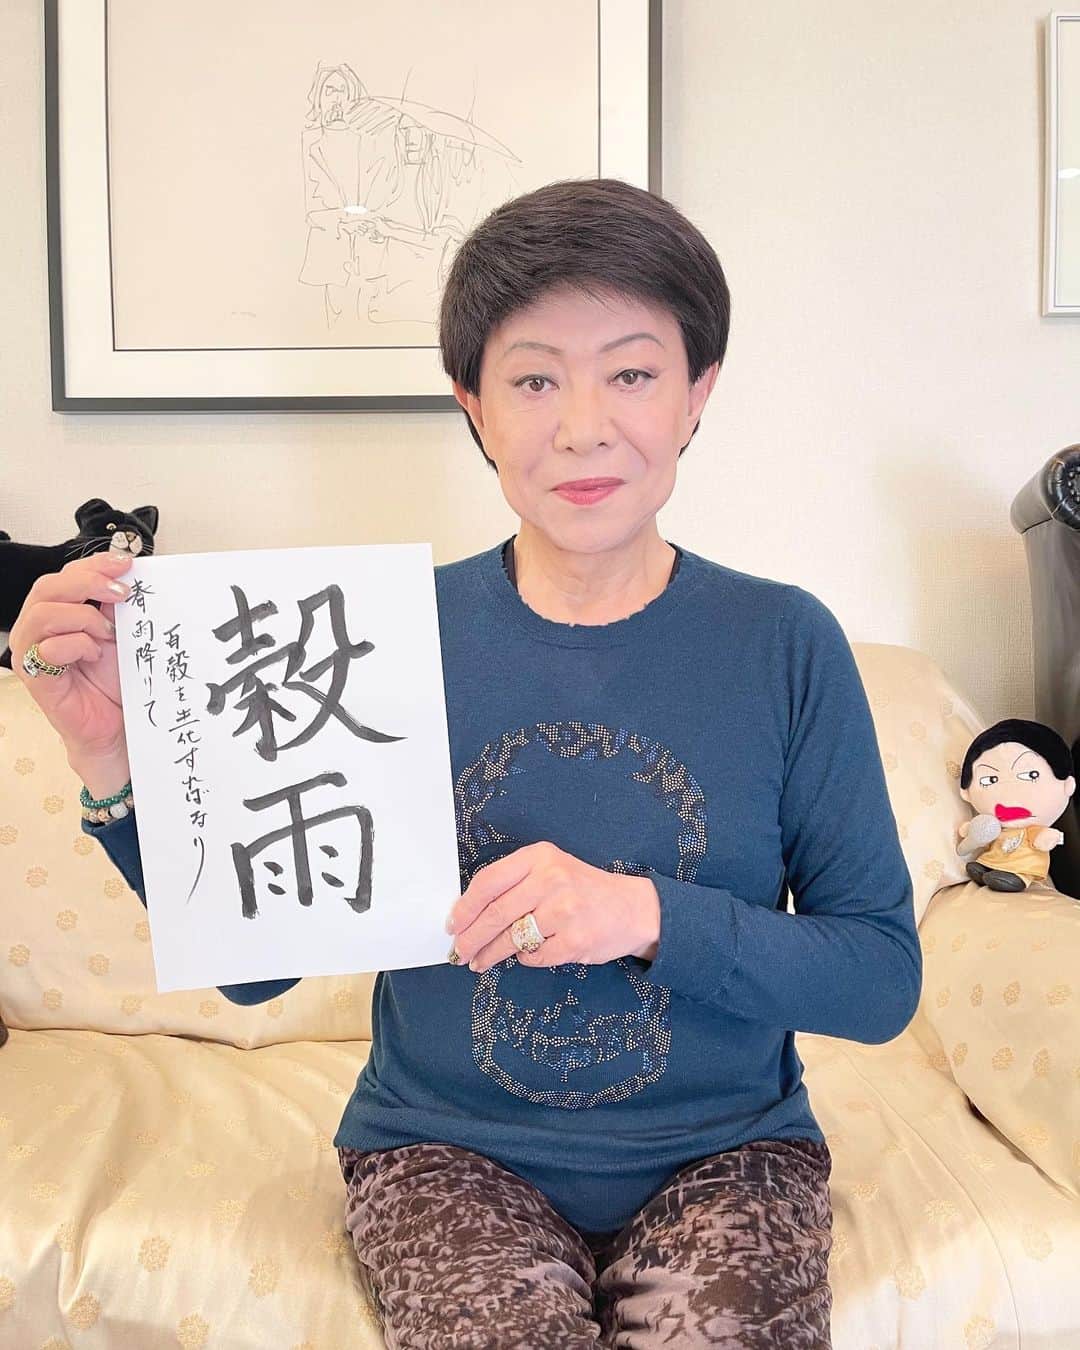 穀雨
春雨降りて
百穀を生化すればなり